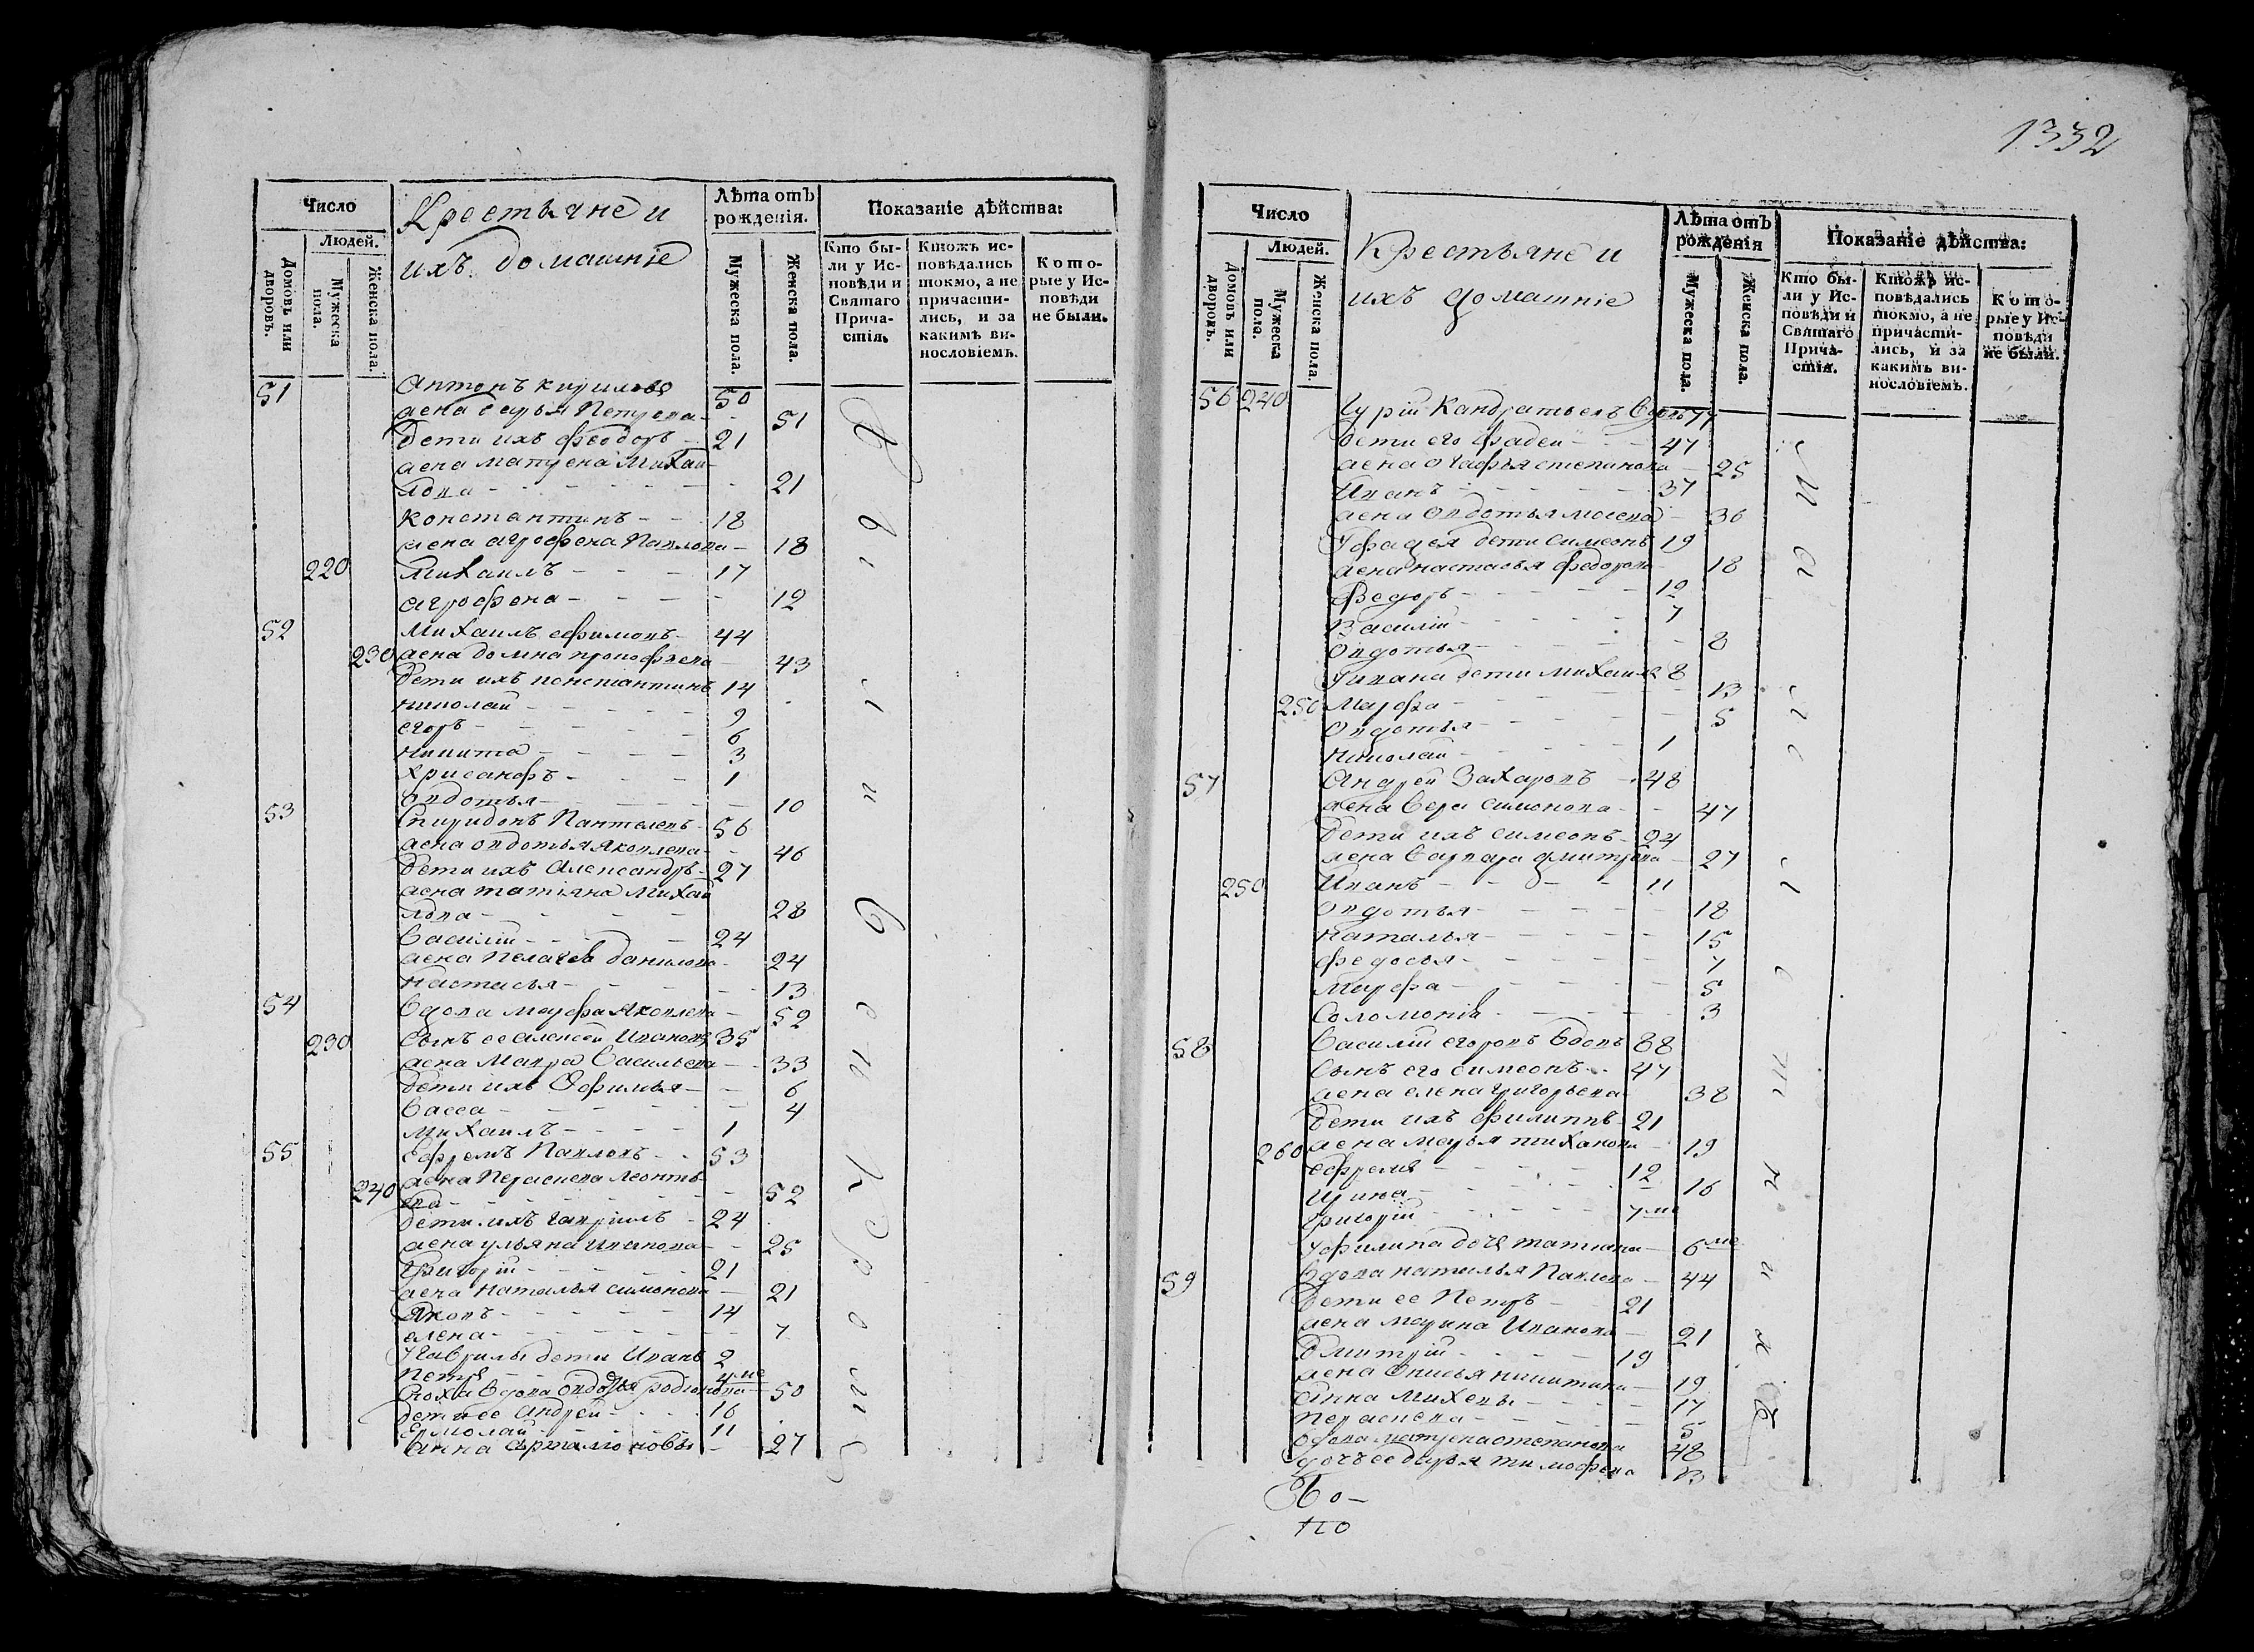 1332
Число
Людей.
Домовъ или дворовъ.
Мужеска пола.
Женска пола.
Крестьяне и
ихъ домашніе
Лѣта отъ рожденія.
Мужеска пола.
Женска пола.
Показаніе дѣйства:
Кто были у Исповѣди и Святаго Причастія.
Ктожъ исповѣдались токмо, а не причастились, и за какимъ винословіемъ.
Которые у Исповѣди не были.
51 Антонъ 50
жена Дарья Петрова 51
Дети ихъ Феодоръ 21
жена матрена Михаи-
лова 21
Константинъ 18
жена агрофена Павлова 18
220 Михаилъ 17
агрофена 12
52 Михаилъ ефимовъ 44
230 жена домна 43
Дети ихъ константинъ 14
николай 9
егоръ 6
никита 3
хрисанфъ 1
овдотья 10
53 Спиридонъ 56
жена овдотья яковлева 46
Дети ихъ Александръ 27
жена татіяна Михаи
лова 28
Василій 24
жена Пелагея данилова 24
настасья 13
54 Вдова марфа яковлева 52
230 Сынъ ее алексей Ивановъ 35
жена Мавра Васильева 33
Дети ихъ Офимья 6
Васса 4
Михаилъ 1
55 Ефремъ Павловъ 53
240 жена Пераскева Леонть-
ева 52
Дети ихъ гаврилъ 24
жена ульяна Иванова 25
Григорій 21
жена наталья симонова 21
яковъ 14
елена 7
У Гаврилы дети Иванъ 2
Петръ 4 ме
Сноха Вдова овдотья родіонова 50
Дети ее андрей 16
Ермолай 11
Анна Артамоновы 27
Число
Людей.
Домовъ или дворовъ.
Мужеска пола.
Женска пола.
Крестьяне и
ихъ домашніе
Лѣта отъ рожденія
Мужеска пола.
Женска пола.
Показаніе дѣйства:
Кто были у Исповѣди и Святаго Причастія.
Ктожъ исповѣдались токмо, а не причастились, и за какимъ винословіемъ.
Которые у Исповѣди не были.
56 240 Гурій Кандратьевъ Вдовъ 77
Дети его фадеи 47
жена огафья степанова 25
Иванъ 37
жена овдотья 36
У фадея дети симеонъ 19
жена настасья федорова 18
Федоръ 12
Василій 7
овдотья 8
У ивана дети михаилъ 8
250 Марфа 13
овдотья 5
николай 1
57 Андрей Захаровъ 48
жена Вера симонова 47
Дети ихъ симеонъ 24
жена Варвара дмитрева 27
250 Иванъ 11
овдотья 18
наталья 15
федосья 7
марфа 5
Соломонія 3
58 Василій егоровъ Вдовъ 88
Сынъ его симеонъ 47
жена елена григорьева 38
Дети ихъ филиппъ 21
260 жена марья тиханова 19
ефремъ 12
Ирина 16
Григорій 7 ме
У филипа дочь татиана 6 ме
59 Вдова наталья Павлова 44
Дети ее Петръ 21
жена марина Иванова 21
Дмитрій 19
жена никитина 19
Анна 17
Пераскева 5
Вдова матрена степанова 48
дочь ее дарья тимофева 13